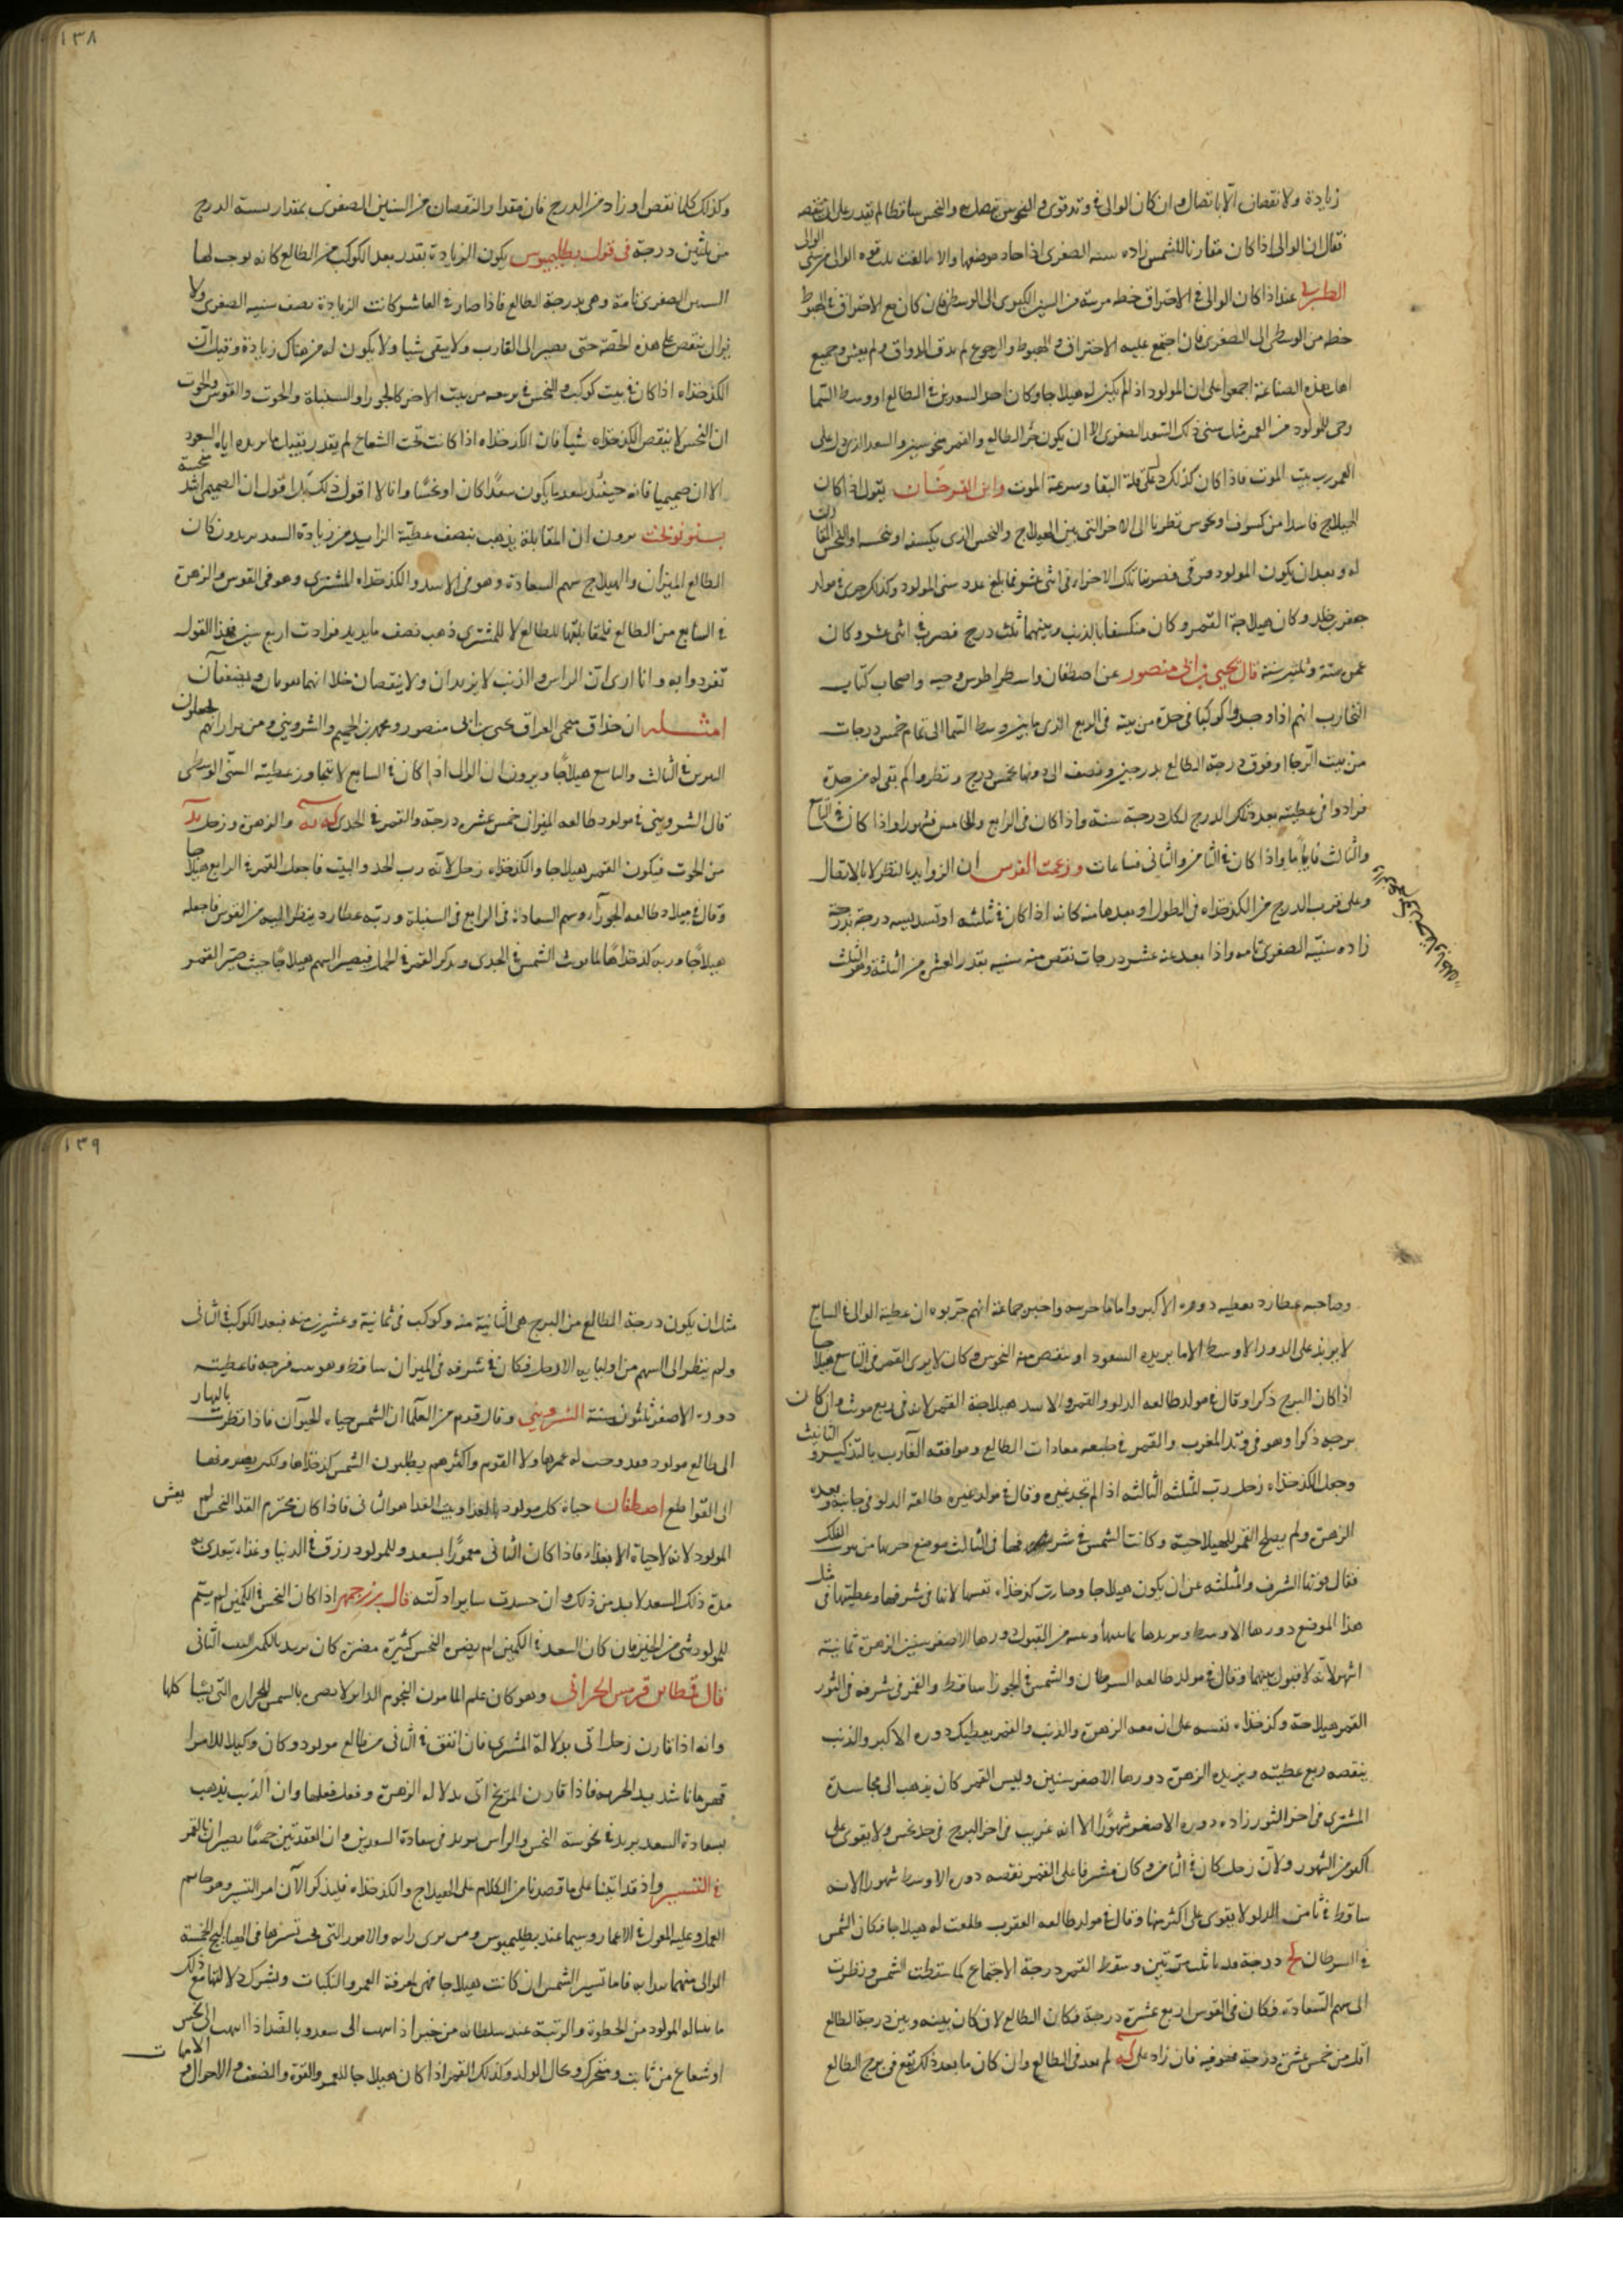 زيادة ولا نقصان الا باتصال وان كان الوالى فى وتد قوى والنحوس تتصل به والنحس ساقطا لم يقدر على ان تنقصه
فقال ان الوالى اذا كان مقارنا للشمس زاده سنيه الصغرى اذا
الطبرى عند اذا كان الوالى فى الاحتراق حط مرتبة من السنين الكبرى الى الوسطى فان كان مع الاحتراق فى الهبوط
حط من الوسطى الى الصغرى فان اجتمع عليه الاحتراق والهبوط والرجوع لم يذق المذاق ولم يعش وجميع
اهل هذه الصناعة اجمعوا على ان المولود اذا لم يكن له هيلاجا وكان احد السعدين فى الطالع او وسط السما
رجى للمولود من العمر مثل سنى ذلك السعد الصغرى الا ان يكون الطالع والقمر منحوسين والسعد الذى دل على
العمر رب بيت الموت فاذا كان كذلك دل على قلة البقا وسرعة الموت وابن الفرخان يقول اذا كان
الهيلاج فاسدا من كسوف او نحوس نظرنا الى الاجزا التى بين الهيلاج والنحس الذى يكسفه او ينحسه او النحس
له وبعد ان يكون المولود فضربنا تلك الاجزاء فى اثنى عشر فما بلغ عدد سنى المولود وكذلك جرى فى مولد
جعفر وكان هيلاجه القمر وكان منكسفا بالذنب وبينهما ثلث درج فضرب فى اثنى عشر وكان
عمره ستة وثلثين سنة قال يحيى بن ابى منصور عن اصطفان واسطراطوس وحيه واصحاب كتاب
التجارب انهم اذا وجدوا كوكبا فى حده من بيته فى الربع الذى ما بين وسط السما الى تمام خمس درجات
من بيت الرجا او فوق درجة الطالع بدرجتين ونصف الى دونها بخمس درج ونظروا كم بقى له من حده
فزادوا فى عطيته بعدد تلك الدرج لكل درجة سنة واذا كان فى الرابع والخامس فشهورا واذا كان فى التاسع
والثالث فاياما واذا كان فى الثامن والثانى فساعات وزعمت الفرس ان الزوايد بالنظر لا بالاتصال
وعلى قرب الدرج من الكدخداه فى الطول او بعدها منه كانه اذا كان فى ثلثه او تسديسه درجة بدرجة
زاده سنيه الصغرى تامة واذا بعد عنه عشر درجات نقص منه سنيه بقدر العشر من الثلثة وهو الثلث
١٣٨
وكذلك كلما نقص او زاد من الدرج فان مقدار النقصان من السنين الصغرى بمقدار نسبة الدرج
من ثلثين درجة فى قول بطلميوس يكون الزيادة بقدر بعد الكوكب من الطالع كانه يوجب لها
السنين الصغرى تامة وهى بدرجة الطالع فاذا صار فى العاشر كانت الزيادة نصف سنيه الصغرى ولا
يزال ينقص على هذه الحصة حتى يصير الى الغارب ولا يبقى شيا ولا يكون له من هناك زيادة وقيل ان
الكدخداه اذا كان فى بيت كوكب والنحس فى تربيعه من بيت الاخر كالجوزا والسنبلة والحوت والقوس والحوت
ان النحس لا ينقص الكدخداه شيأ فان الكدخداه اذا كانت تحت الشعاع لم يقدر يقبل ما يزيده اياه السعود
الا ان صميميا فانه حينئذ يسعد بما يكون سعدا كان او نحسا وانا لا اقول ذلك بل اقول ان الصميمى اشد
بنو نوبخت يرون ان المقابلة يذهب بنصف عطية الزايد من زيادة السعد يريدون كان
الطالع الميزان والهيلاج سهم السعادة وهو فى الاسد والكدخداه المشترى وهو فى القوس والزهرة
فى السابع من الطالع فلمقابلتها للطالع لا للمشترى ذهب نصف ما يزيد فزادت اربع سنين وهذا القول
تفردوا به وانا ارى ان الراس والذنب لا يزيدان ولا ينقصان خلا انهما يقويان ويضعفان
امثلة ان حذاق منجمى العراق يحيى بن ابى منصور ومحمد بن الجهم والشروينى ومن يرا رايهم يجعلون
النيرين فى الثالث والتاسع هيلاجا ويرون ان الوالى اذا كان فى السابع لا يتجاوز عطيته السنى الوسطى
قال الشروينى فى مولود طالعه الميزان خمس عشره درجة والقمر فى الجدى كه نه والزهرة وزحل يد
من الحوت فيكون القمر هيلاجا والكدخداه زحل لانه رب الحد والبيت فاجعل القمر فى الرابع هيلاجا
وقال فى ميلاد طالعه الجوزا وسهم السعادة فى الرابع فى السنبلة وربه عطارد ينظر اليه من القوس فاجعله
هيلاجا وربه كدخداها لما موت الشمس فى الجدى وبذكر القمر فى الحمل فيصير السهم هيلاجا حيث صير القمر
وصاحبه عطارد يعطيه دوره الاكبر واما ما حدسه واحسن جماعة انهم جربوه ان عطية الوالى فى السابع
لا يزيد على الدور الاوسط الا ما يزيده السعود او ينقص منه النحوس وكان لا يرى القمر فى التاسع هيلاجا
اذا كان البرج ذكرا وقال فى مولد طالعه الدلو والقمر والاسد هيلاجه القمر لانه فى ربع مونث وان كان
برجه ذكرا وهو فى وتد المغرب والقمر فى طبيعه معادات الطالع وموافقه الغارب بالتذكير والتانيث
وجعل الكدخداه زحل رب المثلثه الثالثه اذا لم نجد غيره وقال فى مولد غيره طالعه الدلو فى جانبه وبعده
الزهرة ولم يصلح القمر للهيلاجية وكانت الشمس فى شرفها فى الثالث موضع حربها من بيوت الفلك
فقال قوتها الشرف والمثلثه عن ان يكون هيلاجا وصارت كدخداه بنفسها لانها فى شرفها وعطيتها فى مثل
هذا الموضع دورها الاوسط ويزيدها ما بينها وبينه من القبول دورها الاصغر سنين الزهرة ثمانية
اشهر لانه لا قبول بينهما وقال فى مولد طالعه السرطان والشمس فى الجوزا ساقط والقمر فى شرفه فى الثور
القمر هيلاجه وكدخداه نفسه على ان معه الزهرة والذنب والقمر يعطيك دوره الاكبر والذنب
ينقصه ربع عطيته ويزيده الزهرة دورها الاصغر سنين وليس القمر كان يذهب الى مجاسدة
المشترى فى اخر الثور زاده دوره الاصغر شهورا الا انه غريب فى اخر البرج فى حد نحس ولا يقوى على
اكثر من الشهور ولان زحل كان فى الثامن وكان مشرفا على القمر نقصه دوره الاوسط شهورا لانه
ساقط فى ثامن الدلو لا يقوى على اكثر منها وقال فى مولد طالعه العقرب طلعت له هيلاجا فكان الشمس
فى السرطان لح درجة وسقوط القمر درجة الاجتماع كما سقطت الشمس ونظرت
الى سهم السعادة فكان فى القوس اربع عشرة درجة فكان الطالع لان كان بينه وبين درجة الطالع
اقل من خمس عشرة درجة فهو فيه فان زاد على كه لم يعد فى الطالع وان كان ما بعد ذلك يقع فى برج الطالع
١٣٩
مثل ان يكون درجة الطالع من البرج هى الثانية منه وكوكب فى ثمانية وعشرين منه فبعد الكوكب فى الثانى
ولم ينظر الى السهم من اربابه الا زحل فكان فى شرفه فى الميزان ساقط وهو رب فرحه فاعطيته
دوره الاصغر ثلثون سنة الشروينى وقال قوم من العلما ان الشمس حياه الحيوان فاذا نظرت بالنهار
الى طالع مولود فقد وجب له عمرها ولا القوم واكثرهم يطلبون الشمس كدخداها ولكن يصرفونها
الى القواطع اصطفان حياة كل مولود بالغذا وبيت الغذا هو الثانى فاذا كان محترم الغذا النحس لم يعش
المولود لانه لا حياة الا بغذاء فاذا كان الثانى معمورا بسعد وللمولود رزق فى الدنيا وغذاء يتغذى به
مدة ذلك السعد لا بد من ذلك وان حسدت ساير ادلته قال بزرجمهر اذا كان النحس فى الكمين لم يتم
للمولود شى من الخير فان كان السعد فى الكمين لم يضره النحس كثيرة مضرة كان يريد بالكمين البيت الثانى
قال قسطا بن قرميس الحرانى وهو كان علم المامون النجوم الداير لا يضى بالشمس للحرارة التى ينشا كلها
وانه اذا قارن زحل اتى بدلالة المشترى فان اتفق فى الثانى من طالع مولود وكان وكيلا للامرا
قهرمانا شديد الحرمة فاذا قارن المريخ اتى بدلالة الزهرة وفعل فعلها وان الذنب يذهب
بسعادة السعد يريد فى نحوسة النحس والراس يريد فى سعادة السعدين وان العقدتين جميعا يضران بالقمر
فى التسيير واذ قد اتينا على ما قصدنا من الكلام على الهيلاج والكدخداه فليذكر الآن امر التسيير وهو حاسم
العمل وعليه المعول فى الاعمار وسيما عند بطلميوس ومن يرى رايه والامور التى يجب تسييرها فى الهياليج الخمسة
الوالى منهما يبدا به فاما تسيير الشمس ان كانت هيلاجا فهى لمعرفة العمر والنكبات ويشرك دلالتها مع ذلك
ما يناله المولود من الحظوة والرتبة عند سلطانه من خير اذا انتهت الى سعد وبالضد اذا انتهت الى نحس
او شعاع من ثابت ومتحرك وحال الولد وكذلك القمر اذا كان هيلاجا للعمر والقوة والضعف والاحوال و